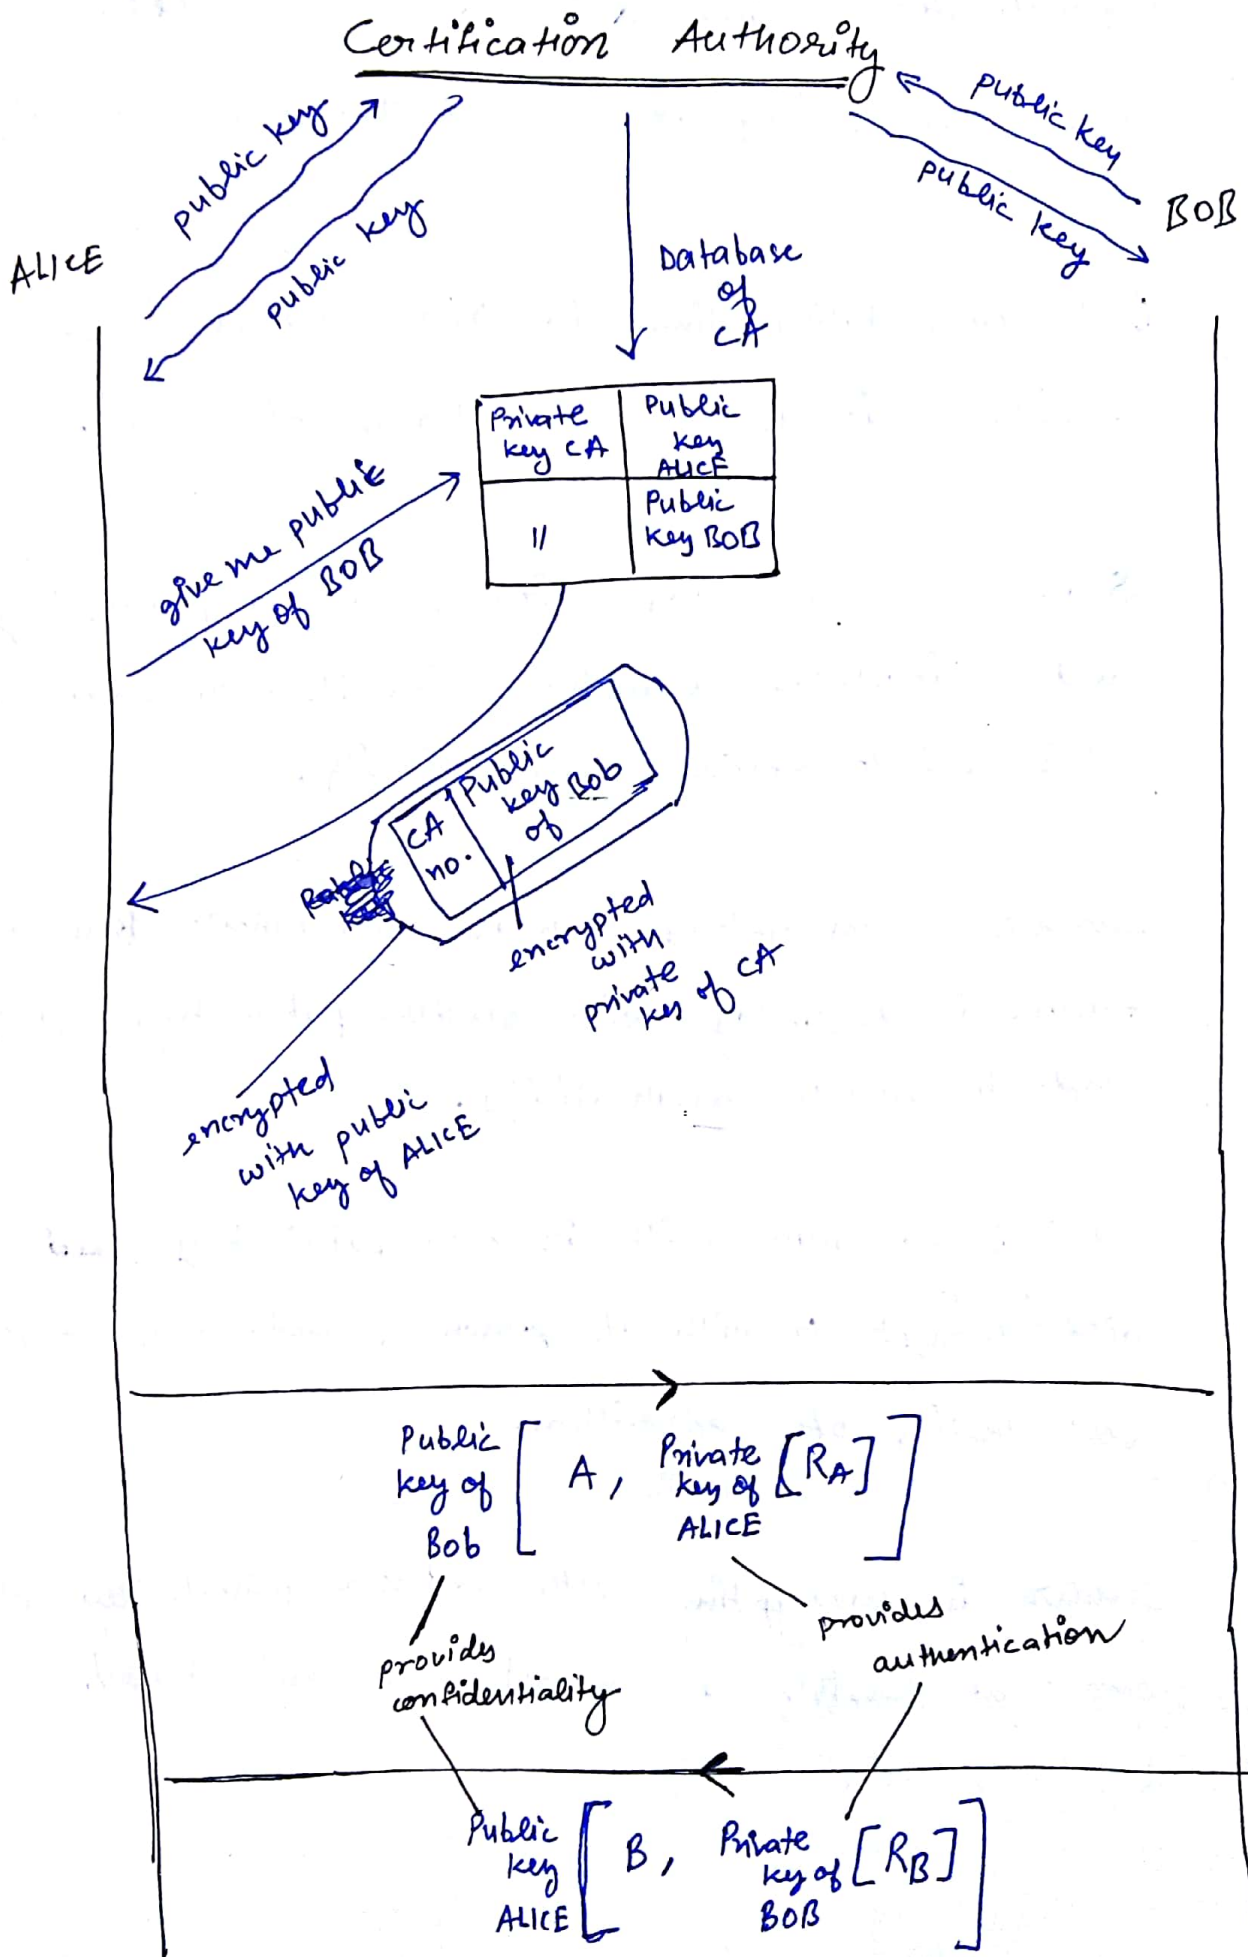 Certification Authority
public key
public key
public key
public key
ALICE
BOB
Database
of
CA
Private
key CA
Public
key
ALICE
"
Public
key BOB
give me public
key of BOB
CA
no.
Public
key
of Bob
encrypted
with
private
key of CA
encrypted
with public
key of ALICE
Public
key of
Bob
[ A, Private
key of
ALICE
[RA] ]
provides
confidentiality
provides
authentication
Public
key
ALICE
[ B, Private
key of
BOB
[RB] ]